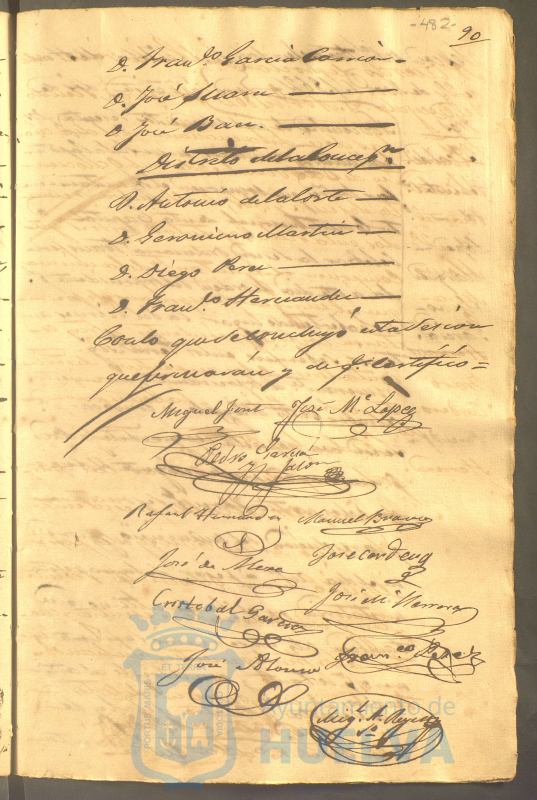 -482-
90
D. Fran.co Garcia Carrion.
D. José Suarez
D. José Baez.
Distrito de la Concepn.
D. Antonio de la Corte
D. Geronimo Martin
D. Diego Perez
D. Fran.co Hernandez
Con lo que se concluyó esta sesion
que firmarán y de q.e certifico =
Miguel José M.a Lopez
Pedro Garcia
y Jalon
Rafael Hernandez Manuel Bravo
José de Mora Jose Cordero
Cristobal Garcia José M.a Herrera
José Alonso Fran.co Perez
Mig.l
Ayuntamiento de
HUELVA